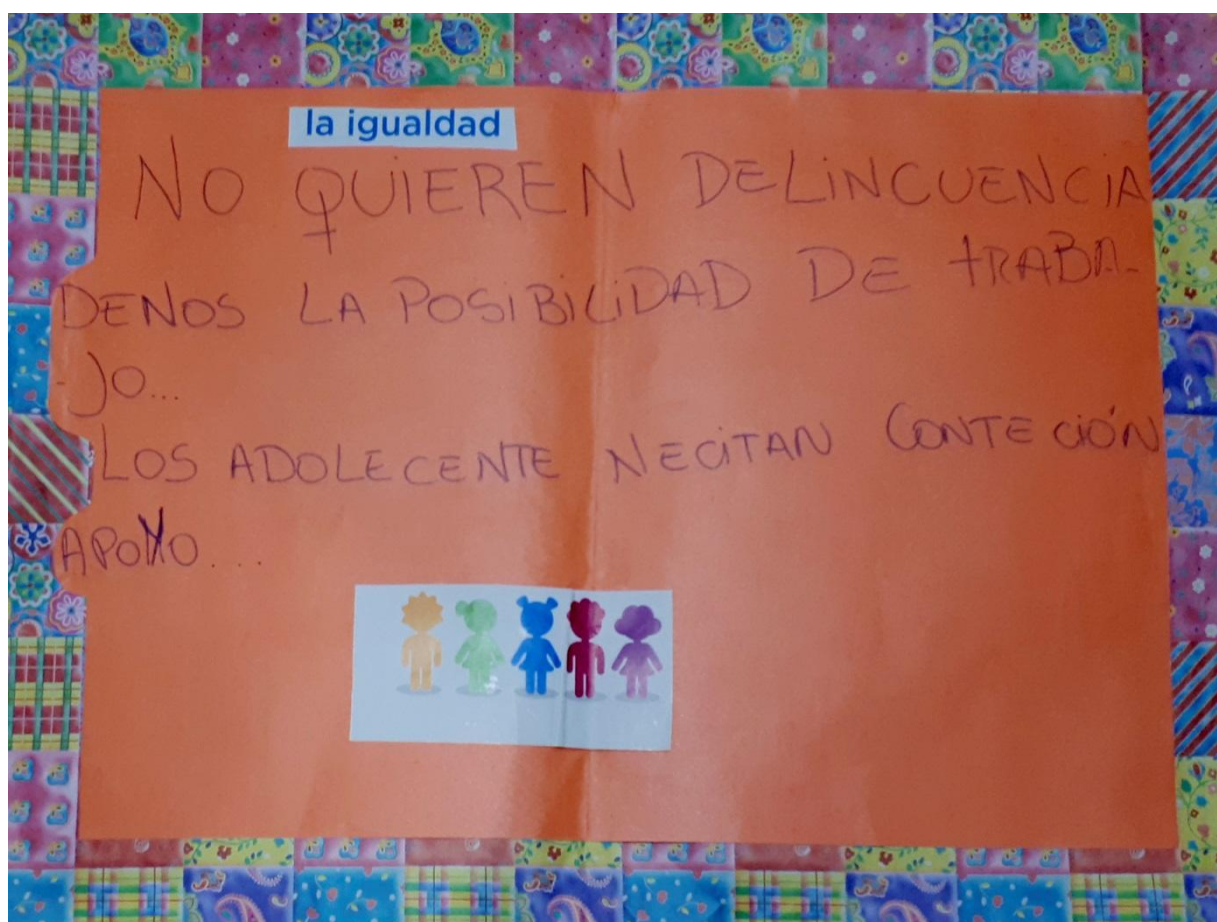 la igualdad
NO QUIEREN DELINCUENCIA
DENOS LA POSIBILIDAD DE tRABA-
-JO...
LOS ADOLECENTE NECITAN CONTECIÓN
APOYO....